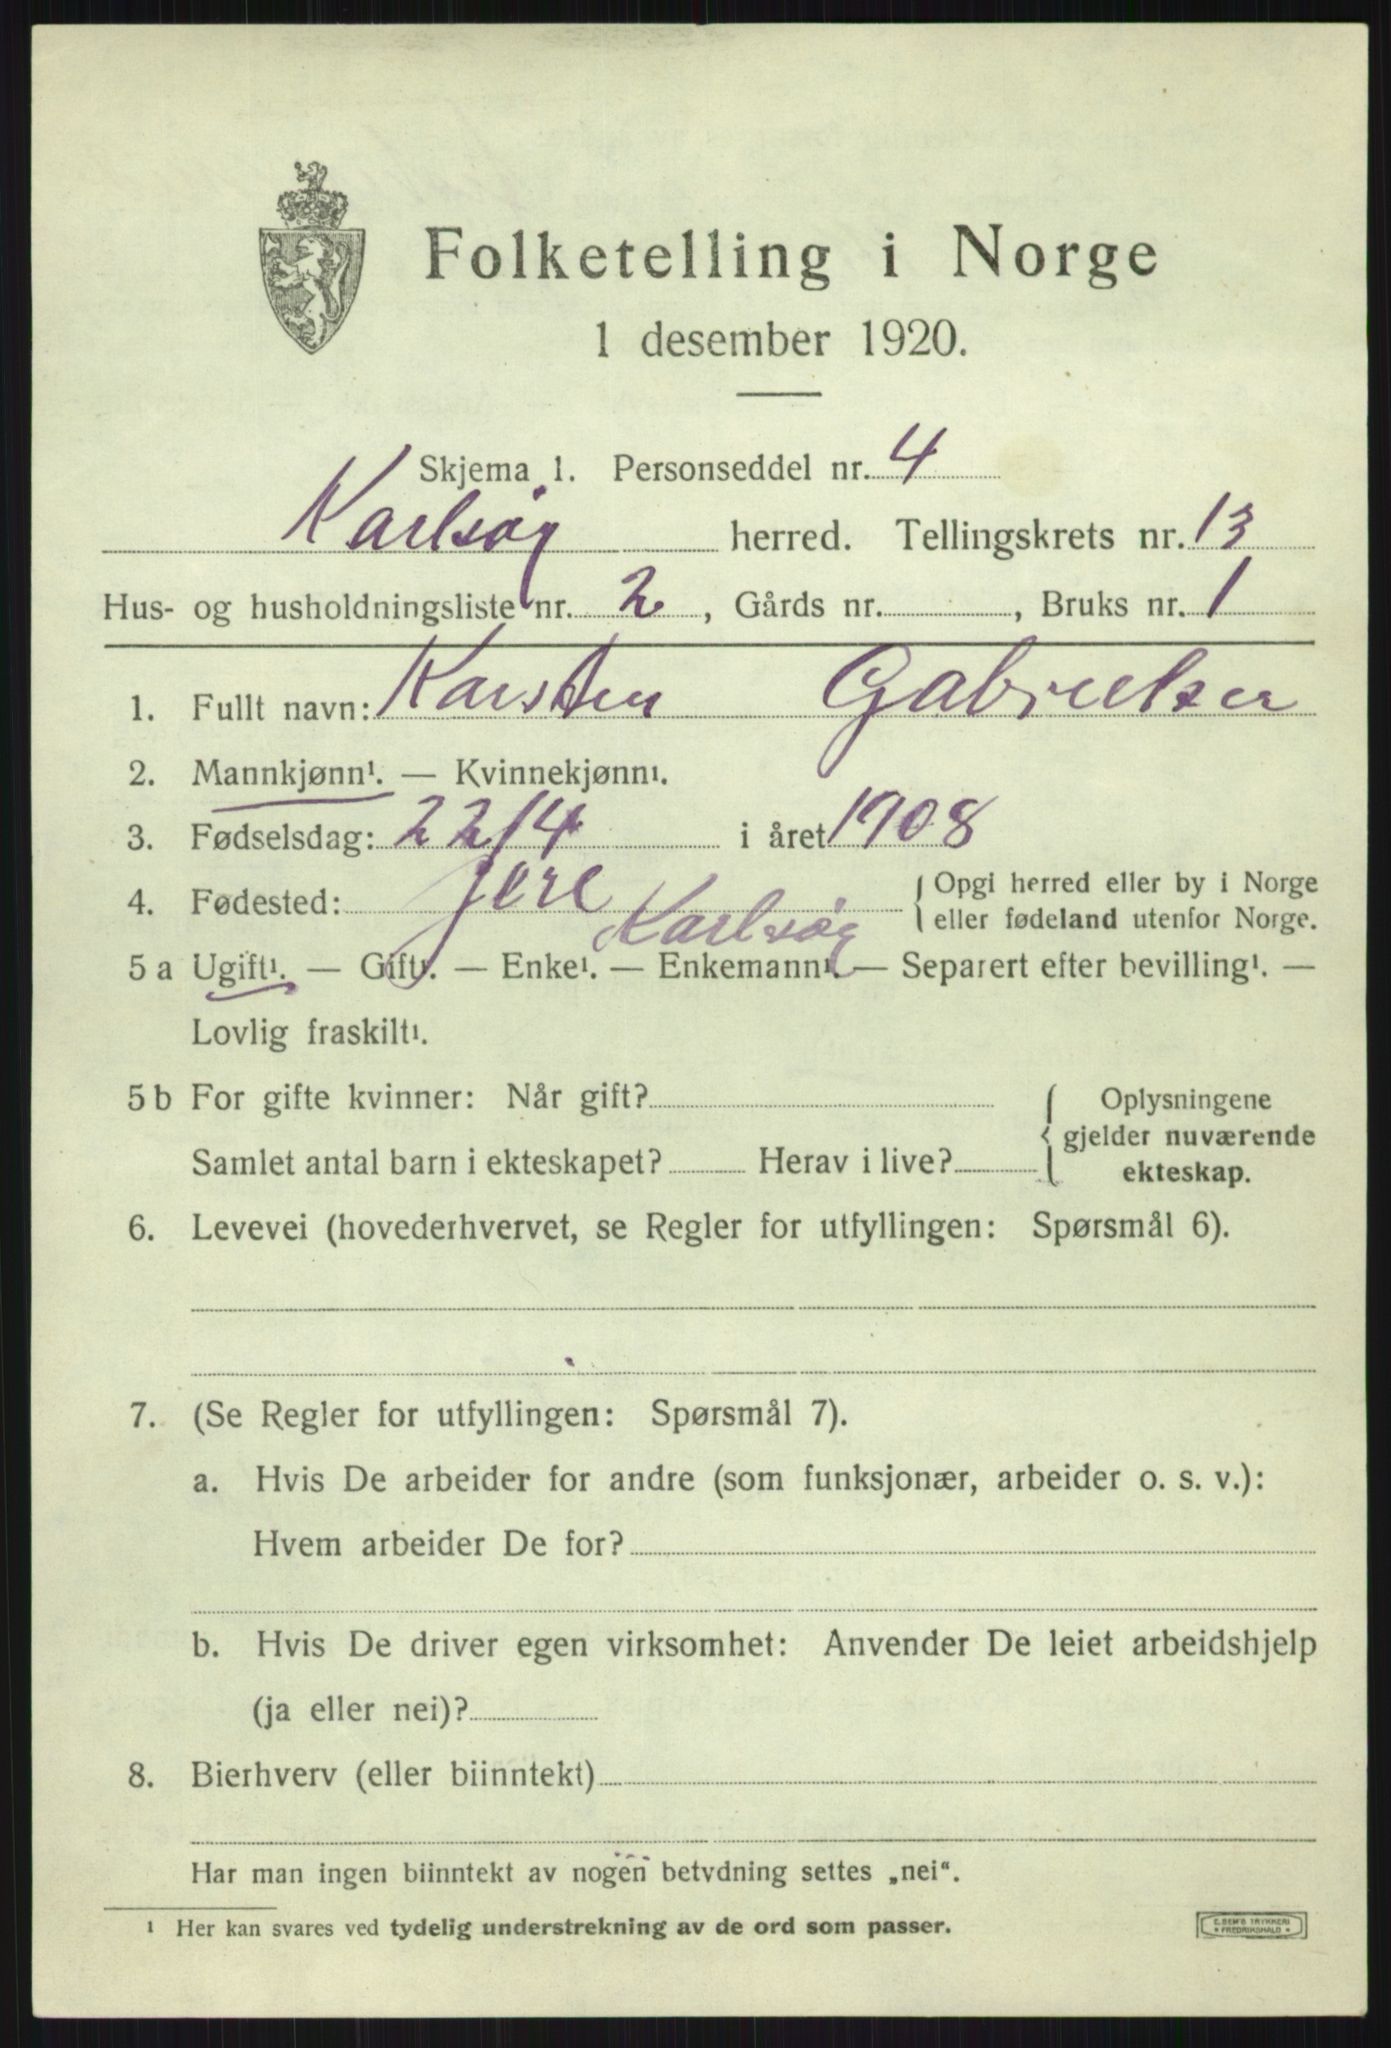 Folketelling i Norge
1 desember 1920.
Skjema 1. Personseddel nr. 4
Karlsøy herred. Tellingskrets nr. 13
Hus- og husholdningsliste nr. 2, Gårds nr. , Bruks nr. 1
1. Fullt navn: Karsten Gabrielsen
2. Mannkjønn¹. — Kvinnekjønn¹.
3. Fødselsdag: 22/4 i året 1908
4. Fødested: Karlsøy { Opgi herred eller by i Norge
eller fødeland utenfor Norge.
5 a Ugift¹. — Gift¹. — Enke¹. — Enkemann¹. — Separert efter bevilling¹. —
Lovlig fraskilt¹.
5 b For gifte kvinner: Når gift?
Samlet antal barn i ekteskapet? Herav i live?
{ Oplysningene
gjelder nuværende
ekteskap.
6. Levevei (hovederhvervet, se Regler for utfyllingen: Spørsmål 6).
7. (Se Regler for utfyllingen: Spørsmål 7).
a. Hvis De arbeider for andre (som funksjonær, arbeider o. s. v.):
Hvem arbeider De for?
b. Hvis De driver egen virksomhet: Anvender De leiet arbeidshjelp
(ja eller nei)?
8. Bierhverv (eller biinntekt)
Har man ingen biinntekt av nogen betydning settes „nei“.
¹ Her kan svares ved tydelig understrekning av de ord som passer.
E. SEM'S TRYKKERI
* FREDRIKSHALD *